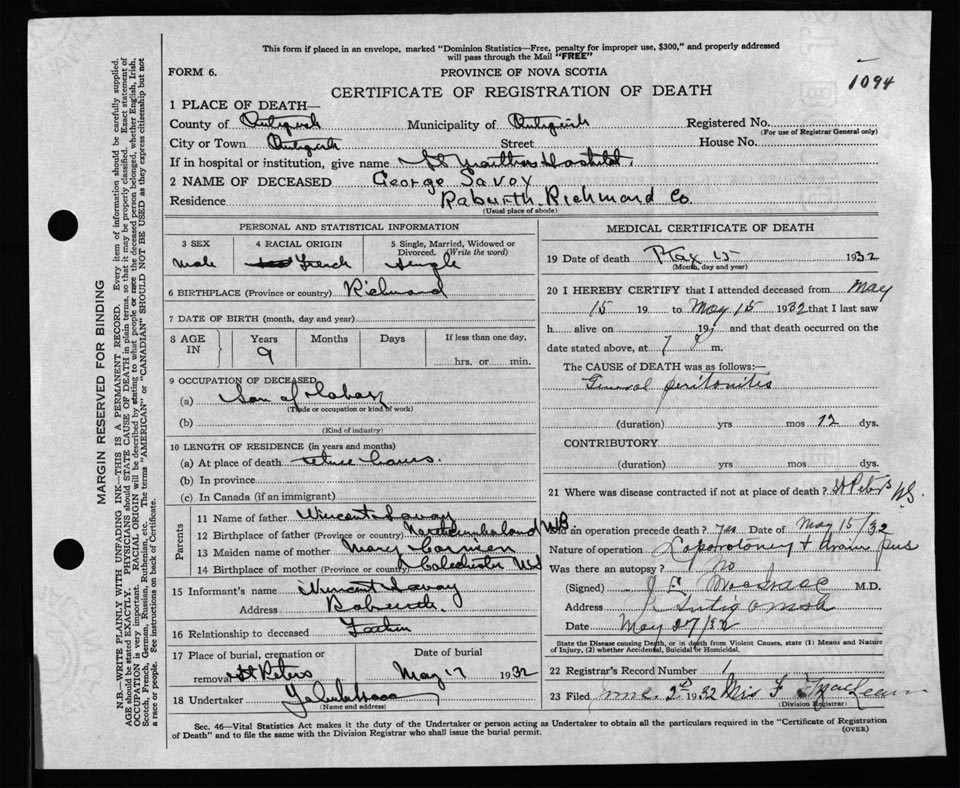 This form if placed in an envelope, marked "Dominion Statistics—Free, penalty for improper use, $300," and properly addressed
will pass through the Mail "FREE"
FORM 6.
PROVINCE OF NOVA SCOTIA
1094
CERTIFICATE OF REGISTRATION OF DEATH
1 PLACE OF DEATH—
County of Antigonish Municipality of Antigonish Registered No.
(For use of Registrar General only)
City or Town Antigonish Street House No.
If in hospital or institution, give name St Marthas Hospital
2 NAME OF DECEASED George Savoy
Residence Richmond Co
(Usual place of abode)
PERSONAL AND STATISTICAL INFORMATION
3 SEX
Male
4 RACIAL ORIGIN
French
5 Single, Married, Widowed or
Divorced. (Write the word)
Single
6 BIRTHPLACE (Province or country) Richmond
7 DATE OF BIRTH (month, day and year)
8 AGE
IN
Years
9
Months
Days
If less than one day,
hrs. or min.
9 OCCUPATION OF DECEASED
(a) Son of
(Trade or occupation or kind of work)
(b)
(Kind of industry)
10 LENGTH OF RESIDENCE (in years and months)
(a) At place of death hours.
(b) In province
(c) In Canada (if an immigrant)
Parents
11 Name of father Vincent Savoy
12 Birthplace of father (Province or country) Northumberland NB
13 Maiden name of mother Mary
14 Birthplace of mother (Province or country) NS
15 Informant's name Vincent Savoy
Address
16 Relationship to deceased Father
17 Place of burial, cremation or
removal St Peters
Date of burial
May 17 1932
18 Undertaker
(Name and address)
MEDICAL CERTIFICATE OF DEATH
19 Date of death May 15 1932
(Month, day and year)
20 I HEREBY CERTIFY that I attended deceased from May
15 19 to May 15 1932 that I last saw
h alive on 19 and that death occurred on
date stated above, at 7 P m.
The CAUSE OF DEATH was as follows:—
General peritonitis
(duration) yrs mos 12 dys.
CONTRIBUTORY
(duration) yrs mos dys.
21 Where was disease contracted if not at place of death? St Peters NS.
Did an operation precede death? yes Date of May 15/32
Nature of operation Laporotomy + drain pus
Was there an autopsy? no
(Signed) MacIsaac M.D.
Address Antigonish
Date May 27/32
State the Disease causing Death, or in death from Violent Causes, state (1) Means and Nature
of Injury, (2) whether Accidental, Suicidal or Homicidal.
22 Registrar's Record Number 1
23 Filed June 2nd 1932 Mrs F MacLean
(Division Registrar)
Sec. 46—Vital Statistics Act makes it the duty of the Undertaker or person acting as Undertaker to obtain all the particulars required in the "Certificate of Registration
of Death" and to file the same with the Division Registrar who shall issue the burial permit.
(OVER)
MARGIN RESERVED FOR BINDING
N.B.—WRITE PLAINLY WITH UNFADING INK—THIS IS A PERMANENT RECORD. Every item of information should be carefully supplied.
AGE should be stated EXACTLY. PHYSICIANS should STATE CAUSE OF DEATH in plain terms, so that it may be properly classified. Exact statement of
OCCUPATION is very important. RACIAL ORIGIN will be described by stating to what people or race the deceased person belonged, whether English, Irish,
Scotch, French, German, Russian, Ruthenian, etc. The terms "AMERICAN" or "CANADIAN" SHOULD NOT BE USED as they express citizenship but not
a race or people. See instructions on back of Certificate.